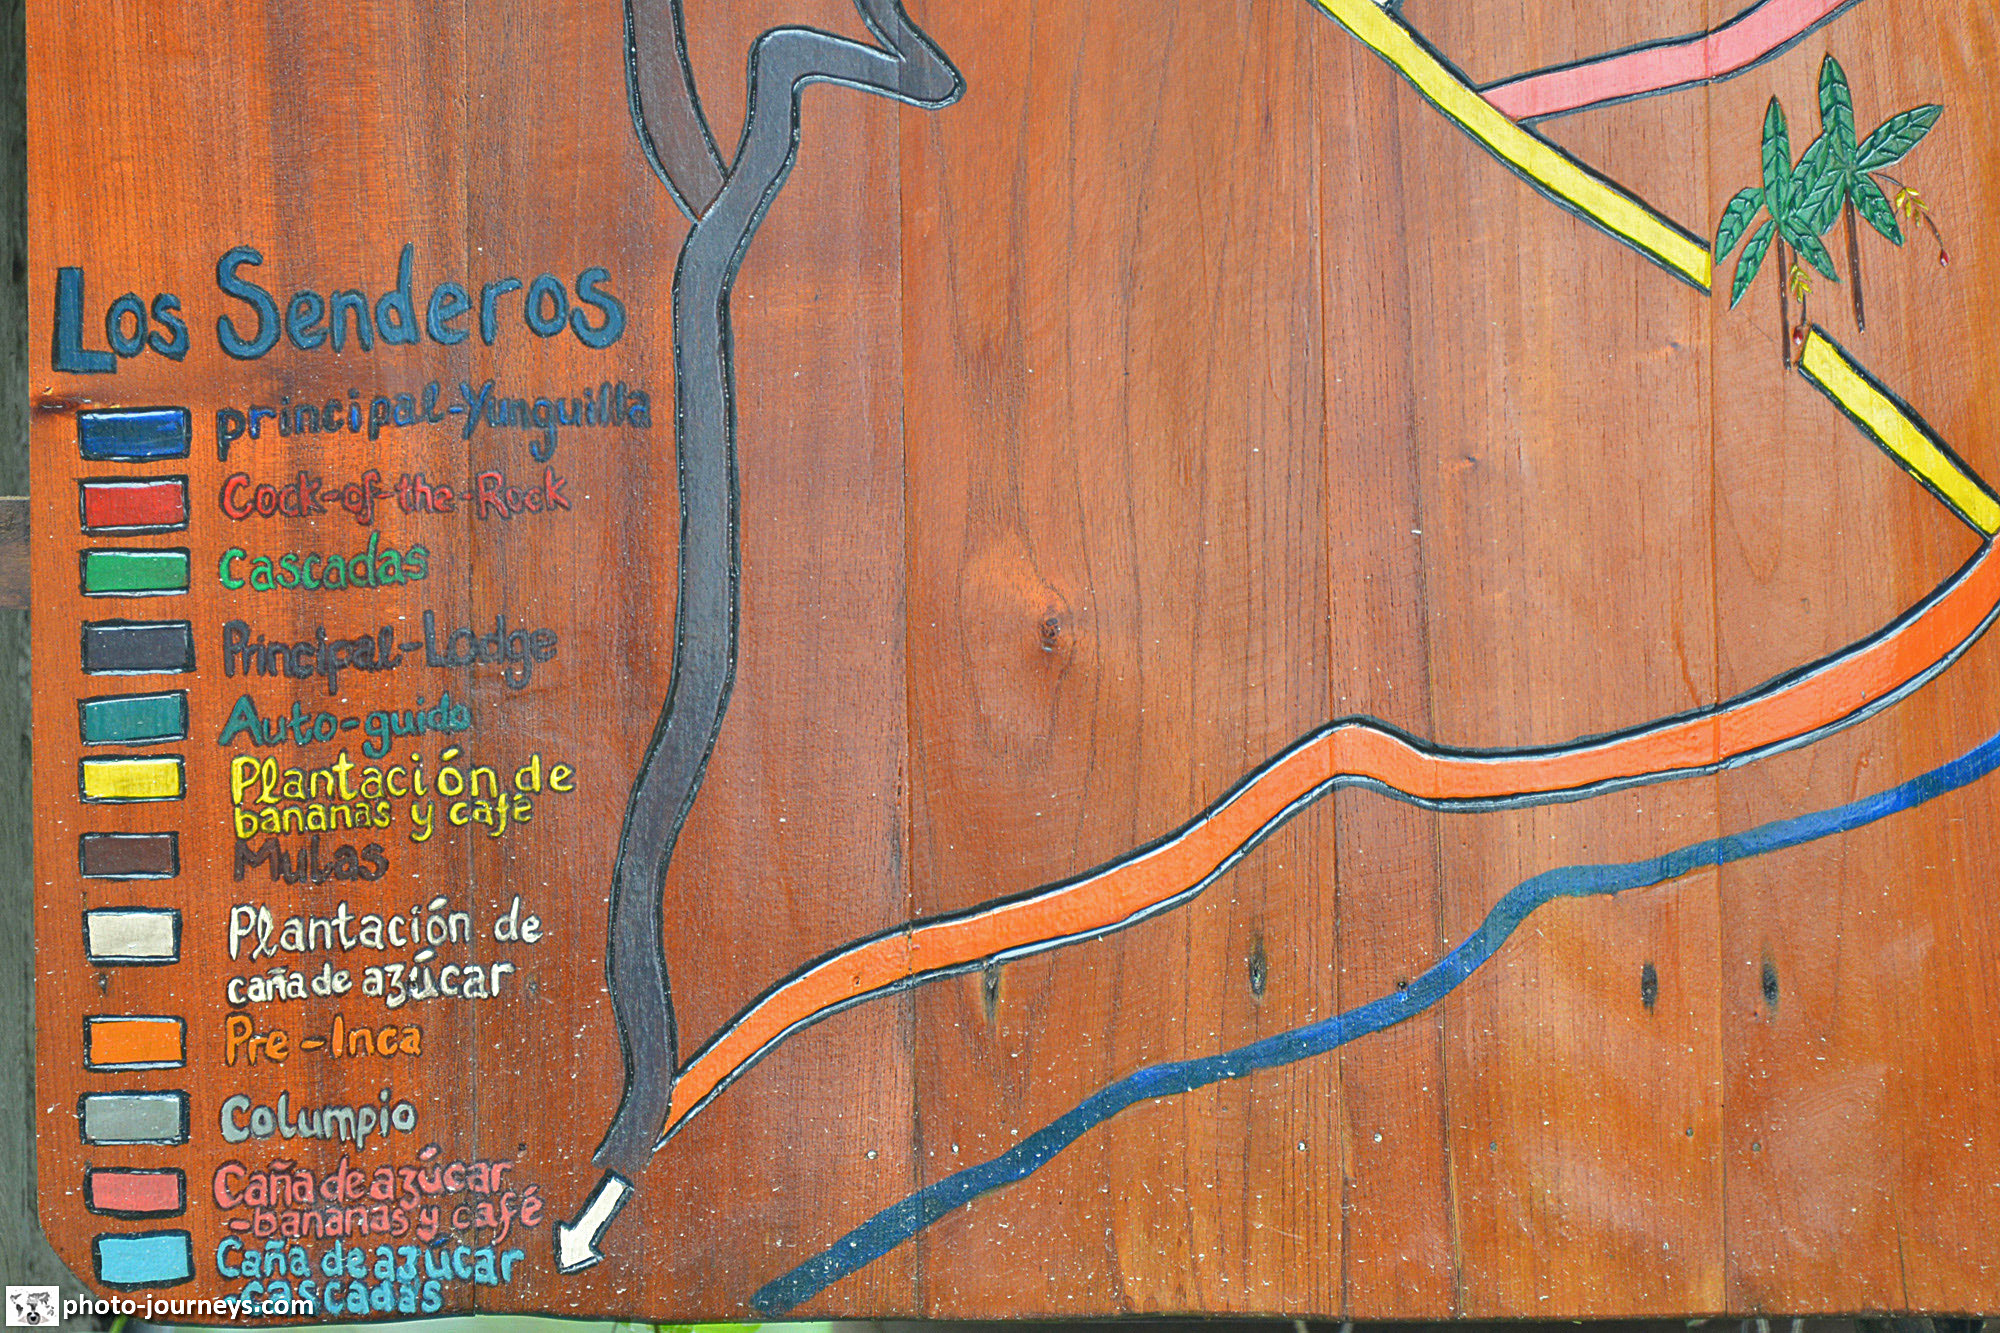 Los Senderos
principal-Yunguilla
Cock-of-the-Rock
Cascadas
Principal-Lodge
Auto-guido
Plantación de
bananas y café
Mulas
Plantación de
caña de azúcar
Pre-Inca
Columpio
Caña de azúcar
-bananas y café
Caña de azúcar
-cascadas
photo-journeys.com